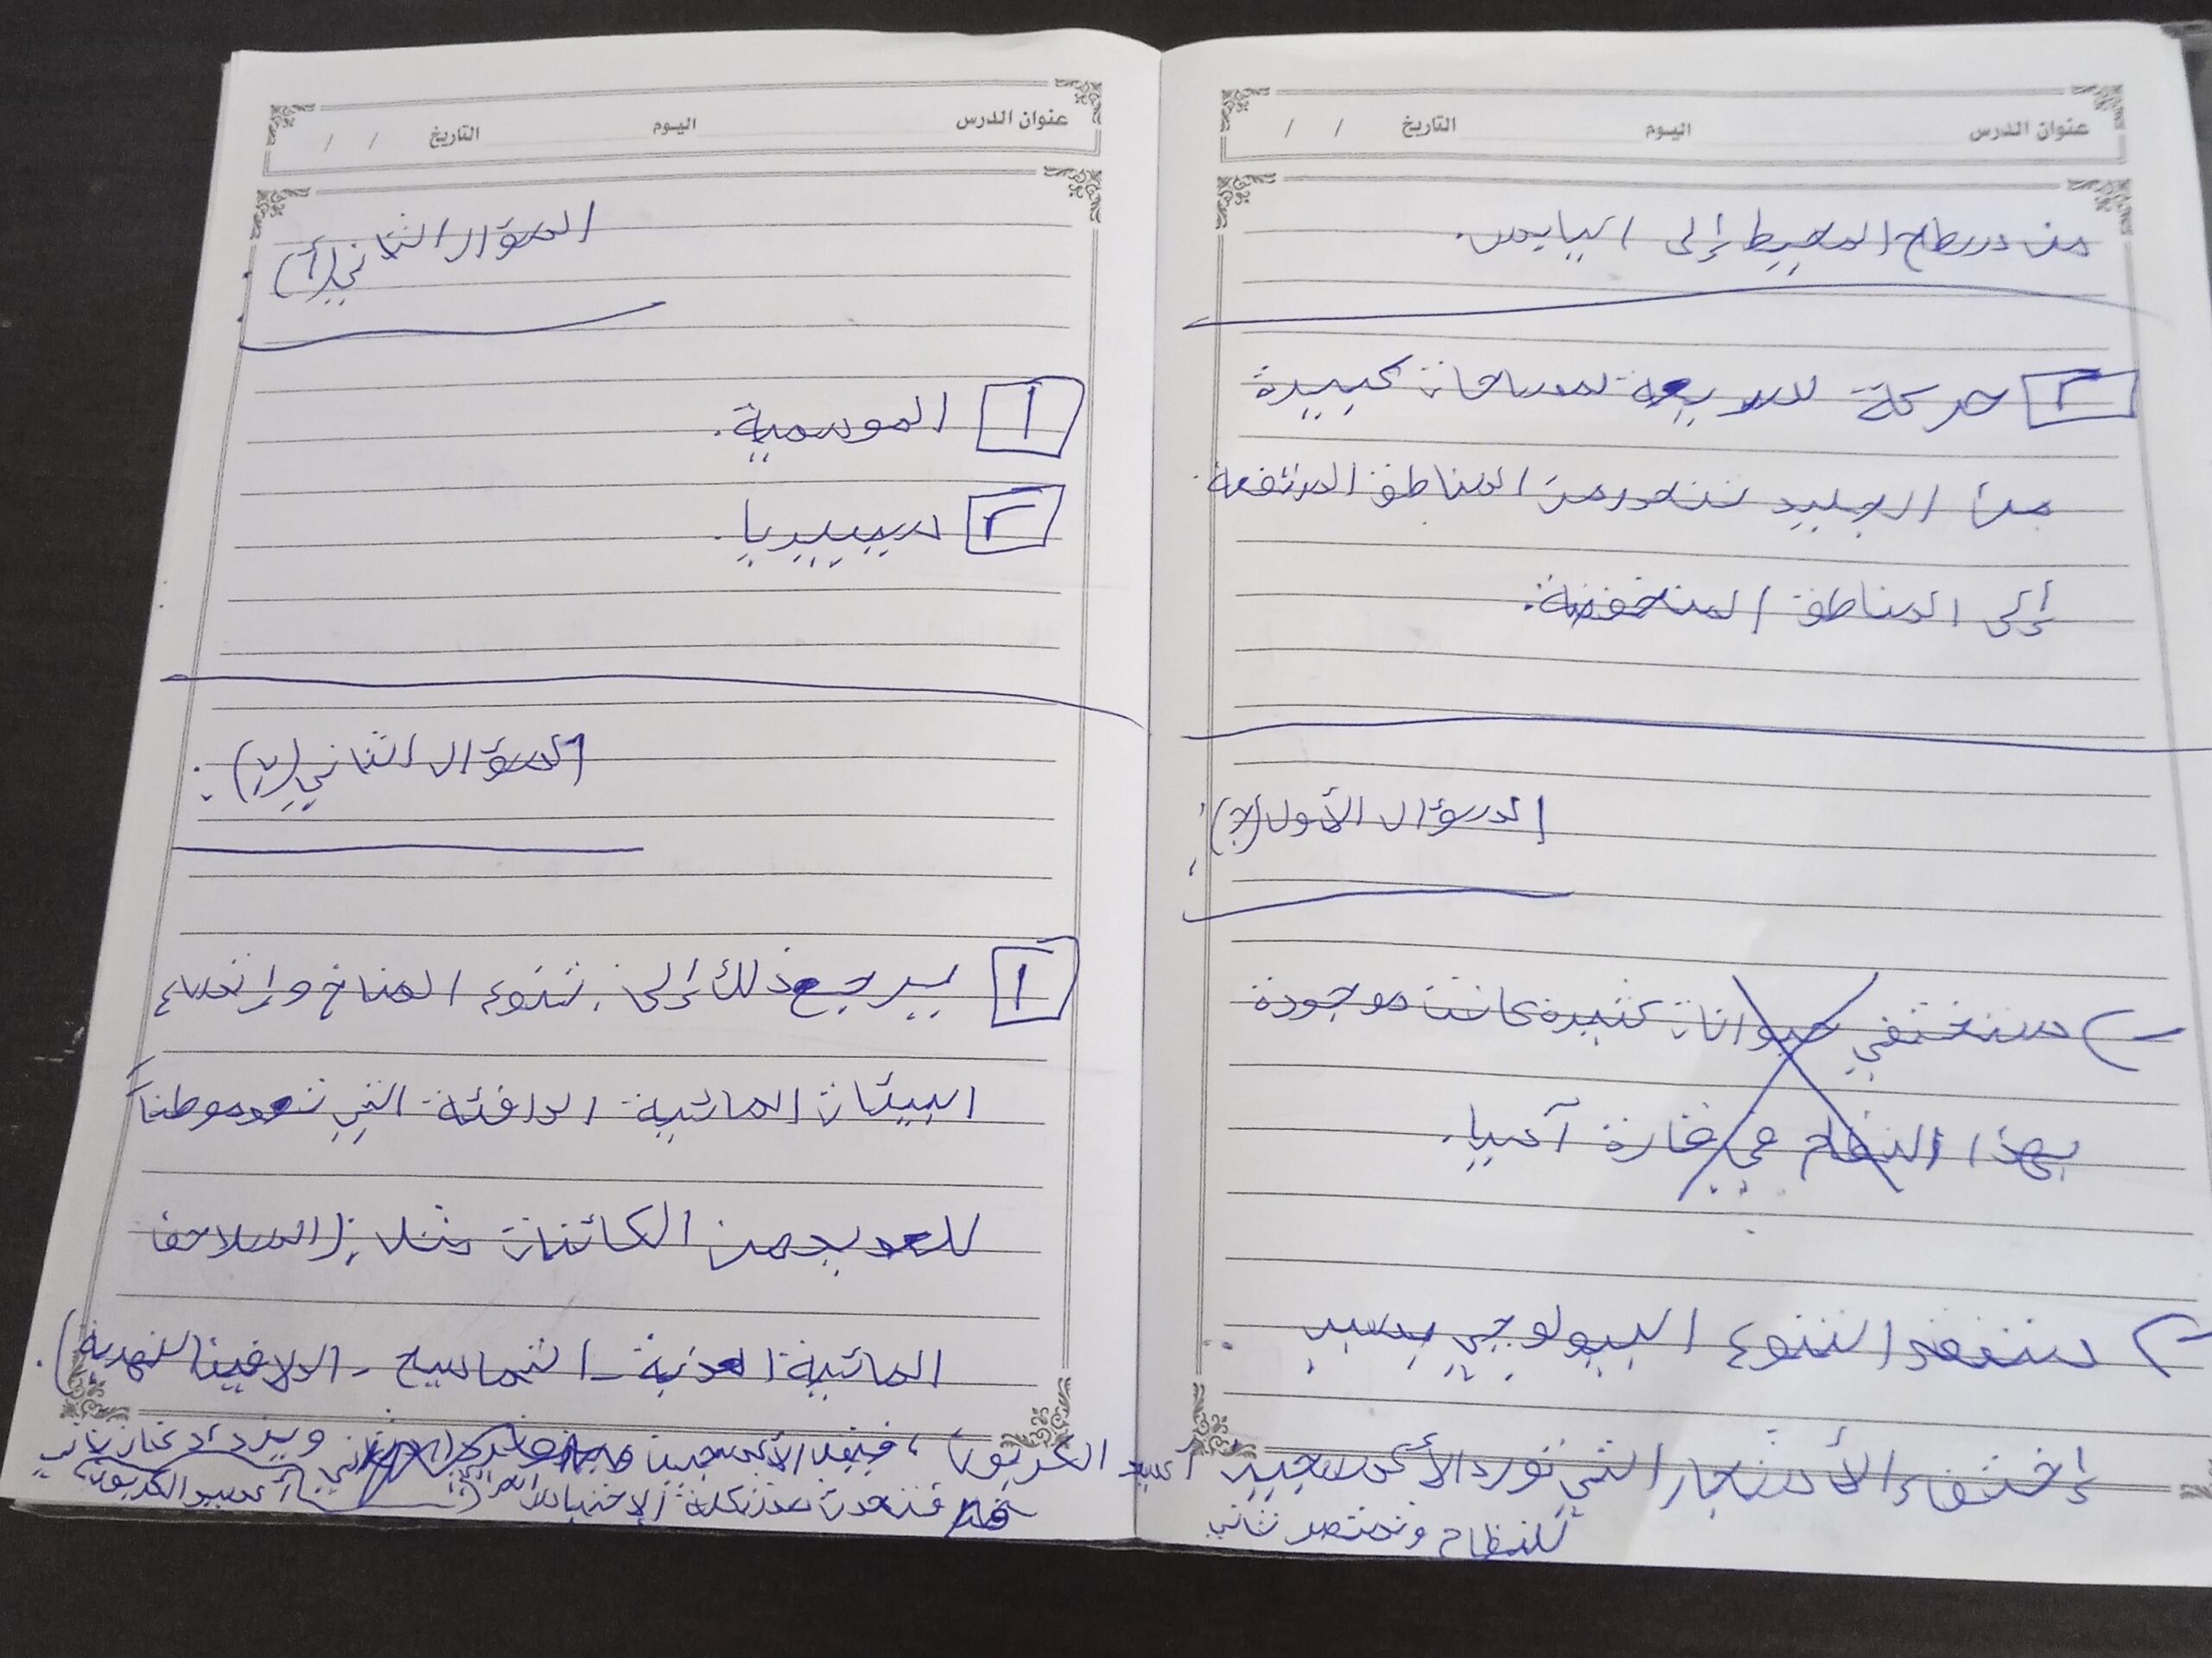 عنوان الدرس اليوم التاريخ / /
من سطح المحيط إلى اليابس.
٢ حركة سريعة لمساحات كبيرة
من الجليد تنحدر من المناطق المرتفعة
إلى المناطق المنخفضة.
السؤال الأول (ج):
ستختفي حيوانات كثيرة كانت موجودة
بهذا النظام في قارة آسيا.
سنفقد التنوع البيولوجي بسبب
إختفاء الأشجار التي تورد الأكسجين
للنظام وتمتص ثاني
أكسيد الكربون، فيقل الأكسجين ويزداد غاز ثاني
أكسيد الكربون
فتحدث مشكلة الإحتباس الحراري
عنوان الدرس اليوم التاريخ / /
السؤال الثاني (أ):
١ الموسمية.
٢ سيبيريا.
السؤال الثاني (ب):
١ يرجع ذلك إلى: تنوع المناخ وإتساع
البيئات المائية الدافئة التي تعد موطناً
للعديد من الكائنات مثل: (السلاحف
المائية العذبة - التماسيح - الدلافين النهرية).